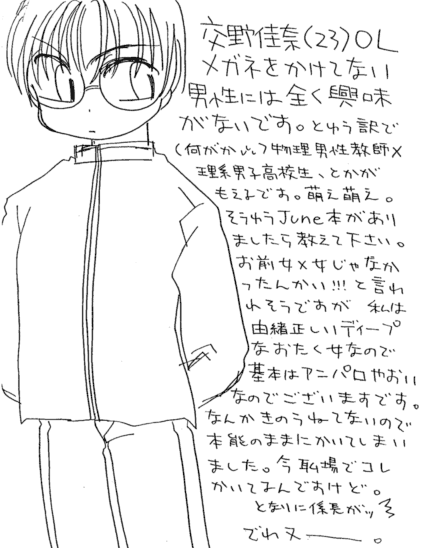 交野佳奈(23)OL
メガネをかけてない
男性には全く興味
がないです。とゆう訳で
(何がかい。)物理男性教師×
理系男子高校生、とかが
もえるです。萌え萌え。
そうゆうJune本があり
ましたら教えて下さい。
お前女×女じゃなか
ったんかい!!!と言わ
れそうですが 私は
由緒正しいディープ
なおたく女なので
基本はアニパロやおい
なのでございますです。
なんかきのうねてないので
本能のままにかいてしまい
ました。今職場でコレ
かいてるんですけど。
となりに係長がッ
でわヌ――。